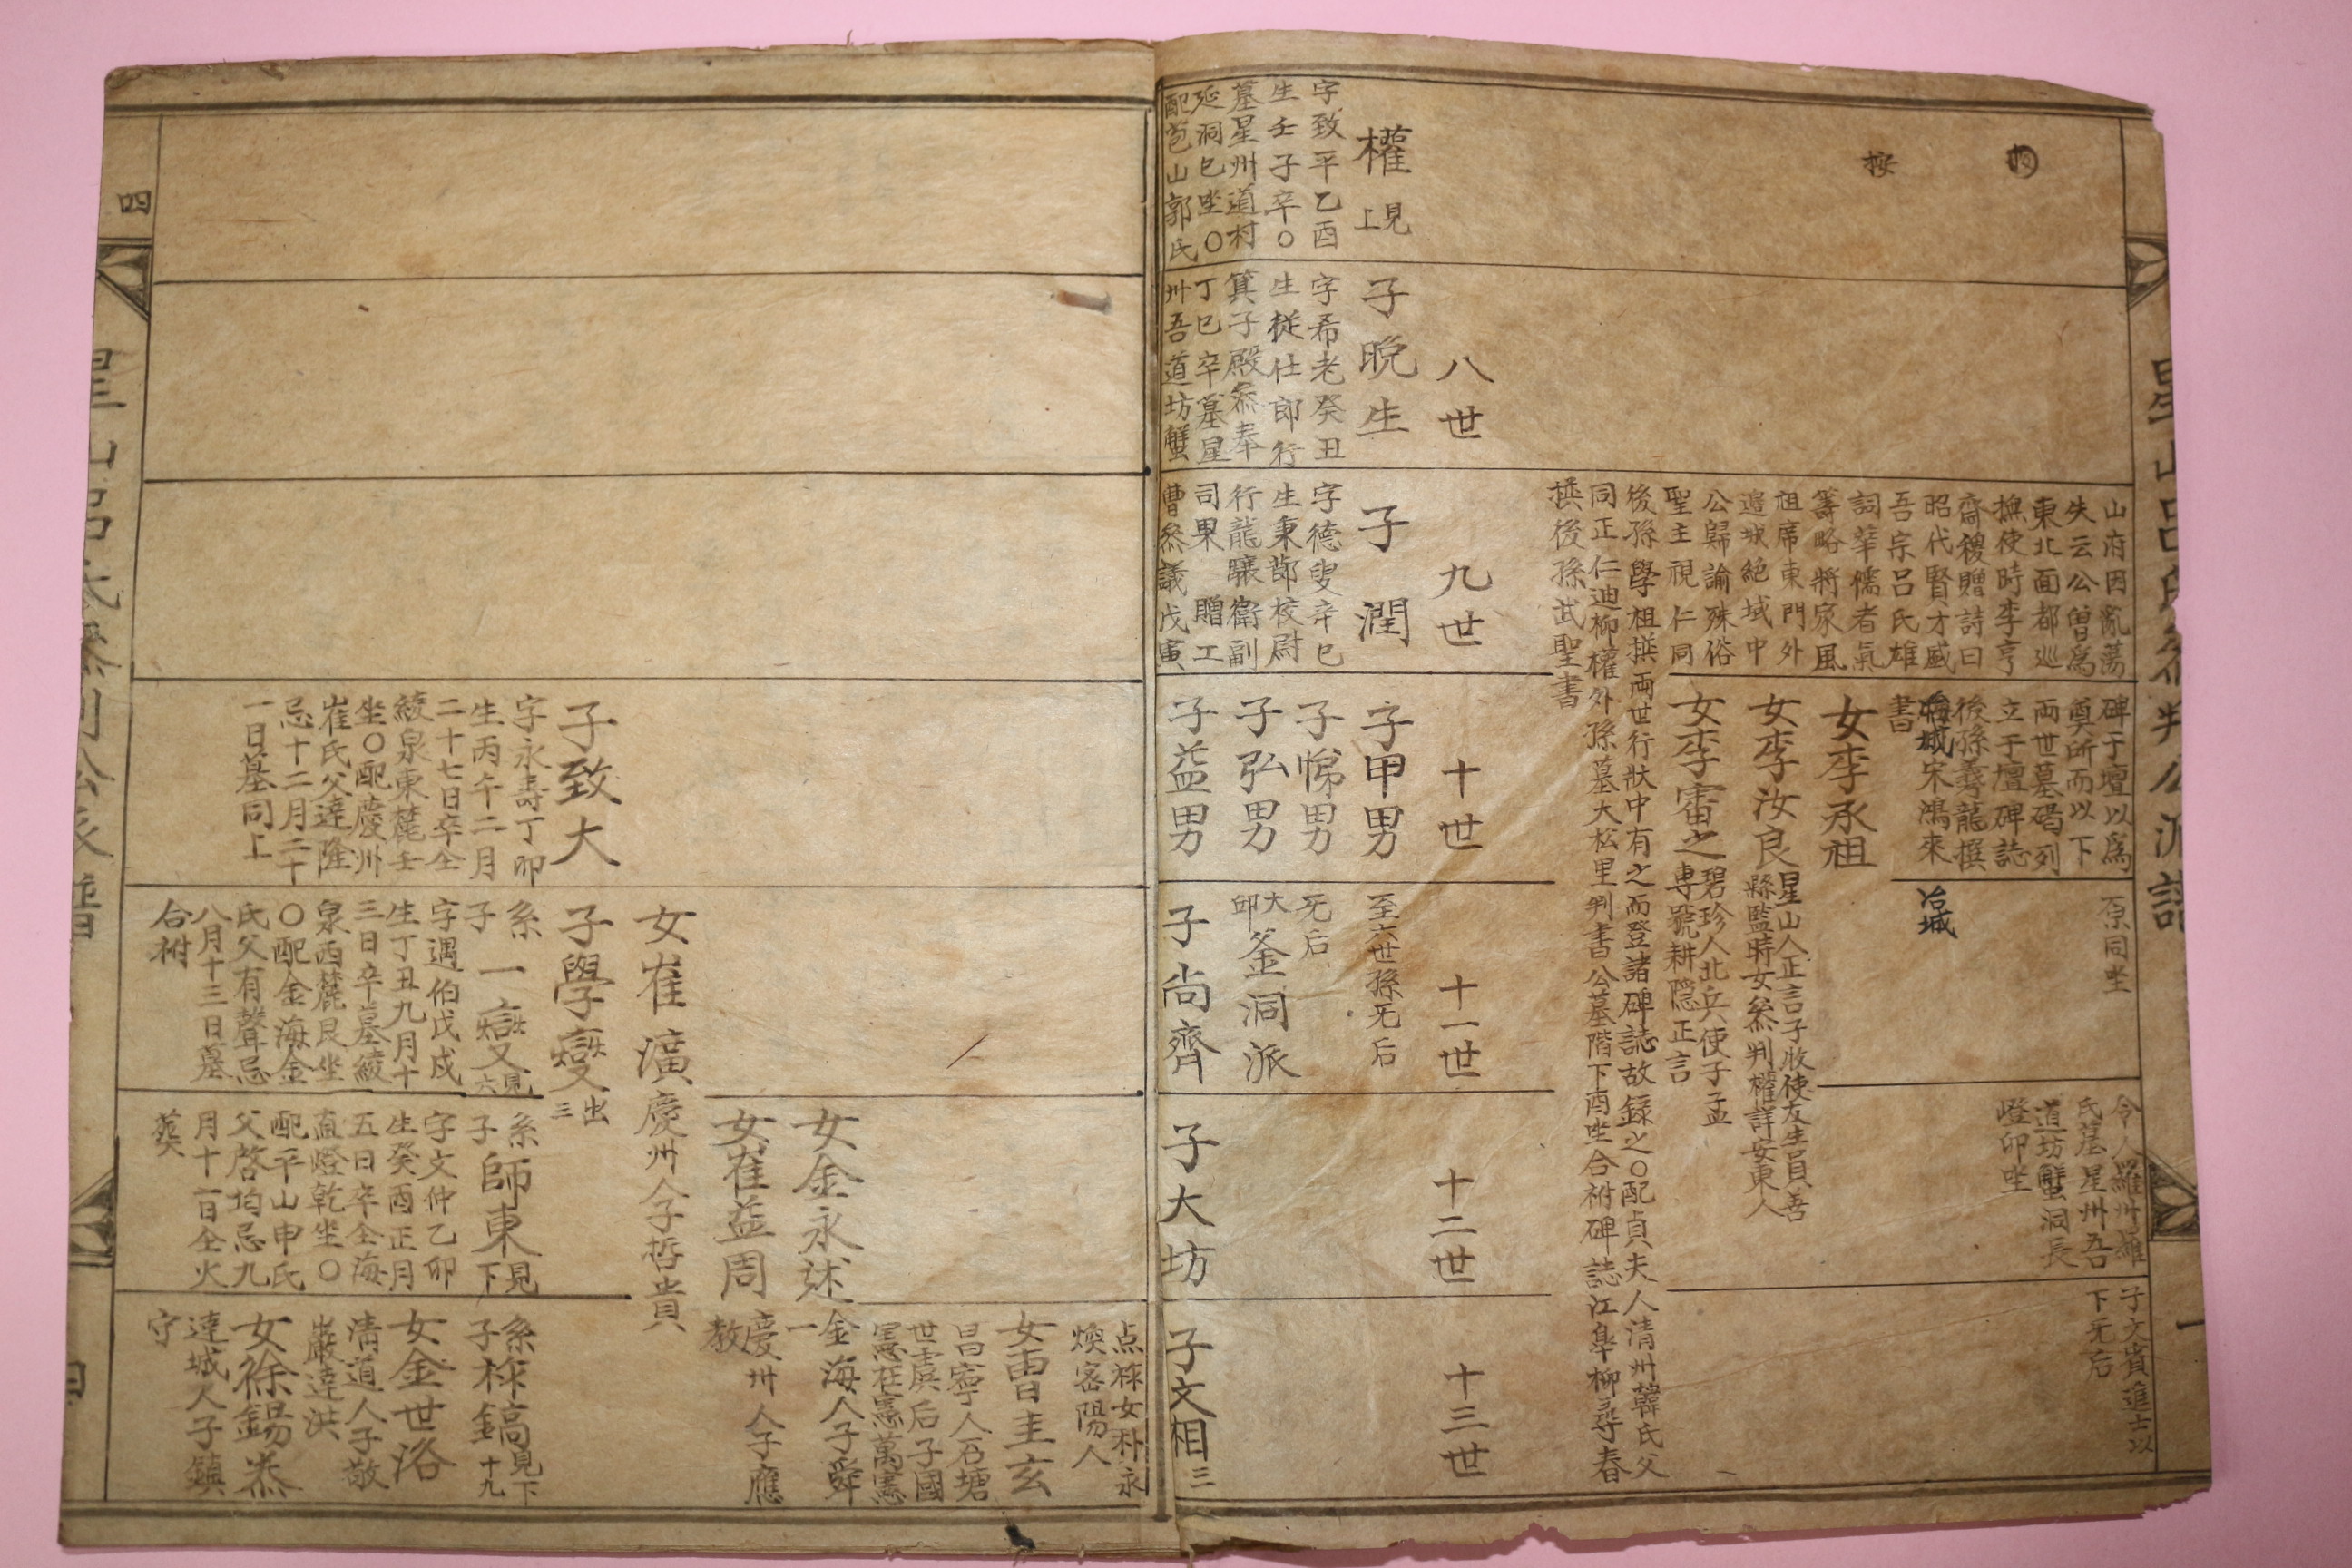 星山呂氏參判公派譜
一
按
山府因亂蕩
失云公曾爲
東北面都巡
撫使時李亨
齋稷贈詩曰
昭代賢才盛
吾宗呂氏雄
詞華儒者氣
籌略將家風
祖席東門外
邊城絕域中
公歸論殊俗
聖主視仁同
後孫學祖撰兩世行狀中有之而登諸碑誌故錄之○配貞夫人清州韓氏父
同正仁迪柳權外孫墓大松里判書公墓階下酉坐合祔碑誌江皐柳尋春
撰後孫武聖書
碑于壇以爲
奠所而以下
兩世墓碣列
立于壇碑誌
後孫羲龍撰
宋鴻來
書
冶城
原同坐
令人羅州羅
氏墓星州吾
道坊蟹洞長
燈卯坐
子文賓進士以
下无后
女李承祖
女李汝良
星山人正言子牧使友生員善
縣監時女參判權詳安東人
女李審之
碧珍人北兵使子孟
專號耕隱正言
八世
九世
十世
十一世
十二世
十三世
權
見上
字致平乙酉
生壬子卒○
墓星州道村
延洞巳坐○
配苞山郭氏
子晩生
字希老癸丑
生從仕郎行
箕子殿參奉
丁巳卒墓星
州吾道坊蟹
子潤
字德叟辛巳
生秉節校尉
行龍驤衛副
司果贈工
曹參議戊寅
子甲男
至六世孫无后
子悌男
无后
子弘男
大邱釜洞派
子益男
子尚齊
子大坊
子文相
三
点祿女朴永
煥密陽人
女曺圭玄
昌寧人石塘
世虞后子國
憲在憲萬憲
女金永述
金海人子舜
一
女崔益周
慶州人子應
教
女崔澬
慶州人子哲貴
子致大
字永壽丁卯
生丙午二月
二十七日卒仝
綾泉東麓壬
坐○配慶州
崔氏父達隆
忌十二月二十
一日墓同上
子學變
出三
系子一變
見六
字遇伯戊戌
生丁丑九月十
三日卒墓綾
泉西麓艮坐
○配金海金
氏父有聲忌
八月十三日墓
合祔
系子師東
見下
字文仲乙卯
生癸酉正月
五日卒仝海
直燈乾坐○
配平山申氏
父啓均忌九
月十一日仝火
葬
系子祿鎬
見下十九
女金世洛
清道人子敬
巖達洪
女徐錫烝
達城人子鎮
守
四
星山呂氏參判公派譜
四